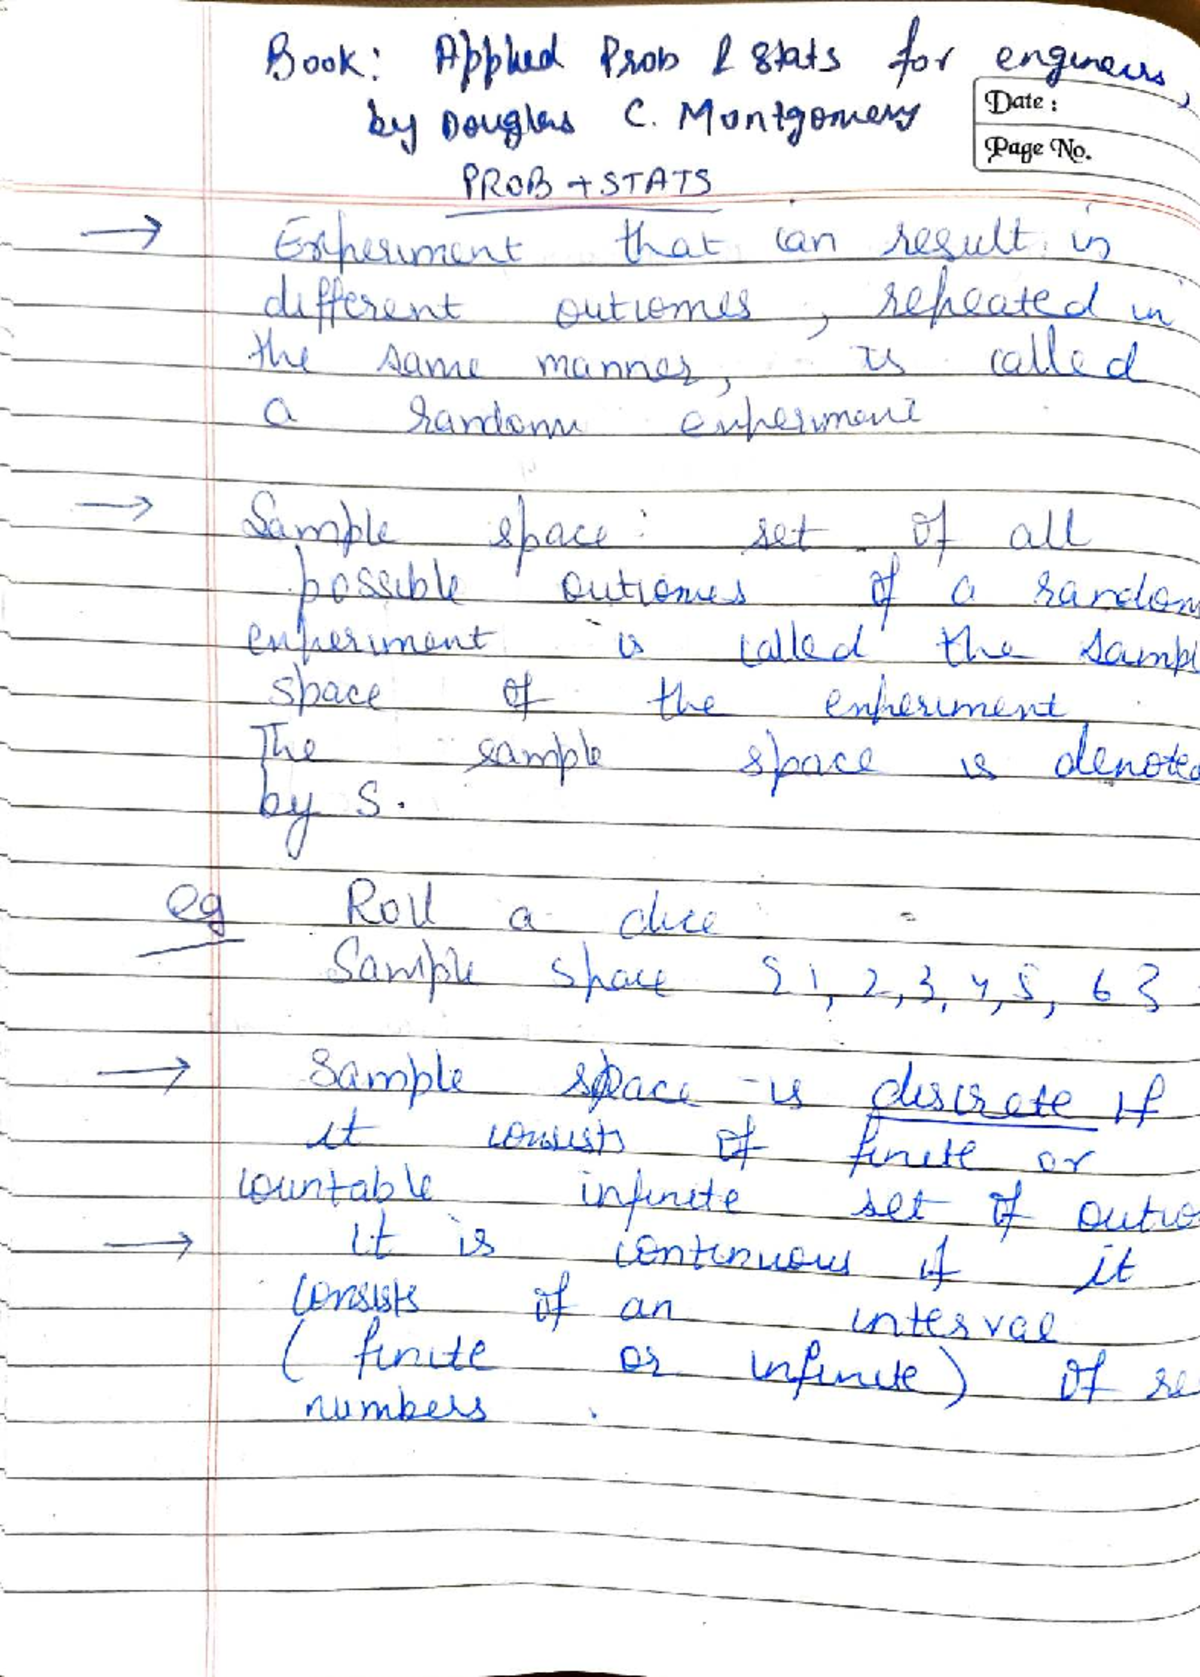 Book: Applied Prob & Stats for engineers,
by Douglas C. Montgomery
Date :
Page No.
PROB + STATS
→ Experiment that can result in
different outcomes, repeated in
the same manner, is called
a random experiment
→ Sample space: set of all
possible outcomes of a random
experiment is called the sampl
space of the experiment
The sample space is denoted
by S.
eg Roll a dice
Sample space {1, 2, 3, 4, 5, 6}
→ Sample space is discrete if
it consists of finite or
countable infinite set of outco
→ It is continuous if it
consists of an interval
(finite or infinite) of re
numbers.